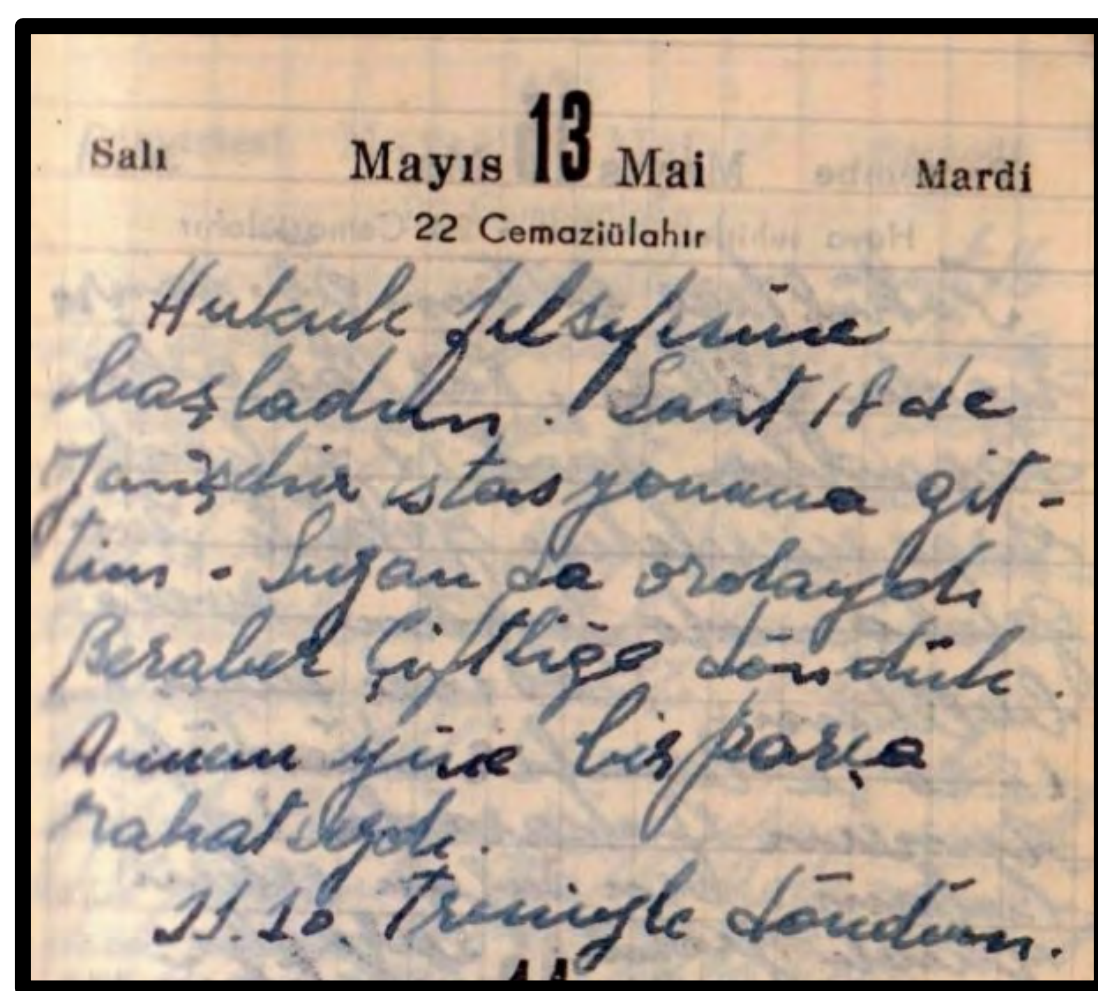 Salı Mayıs 13 Mai Mardi
22 Cemaziülahır
Hukuk felsefesine
başladım. Saat 18 de
Yenişehir istasyonuna git-
tim - Suzan da ordaydı
Beraber Çiftliğe döndük.
Annem yine bir parça
rahatsızdı.
11.10. Treniyle döndüm.